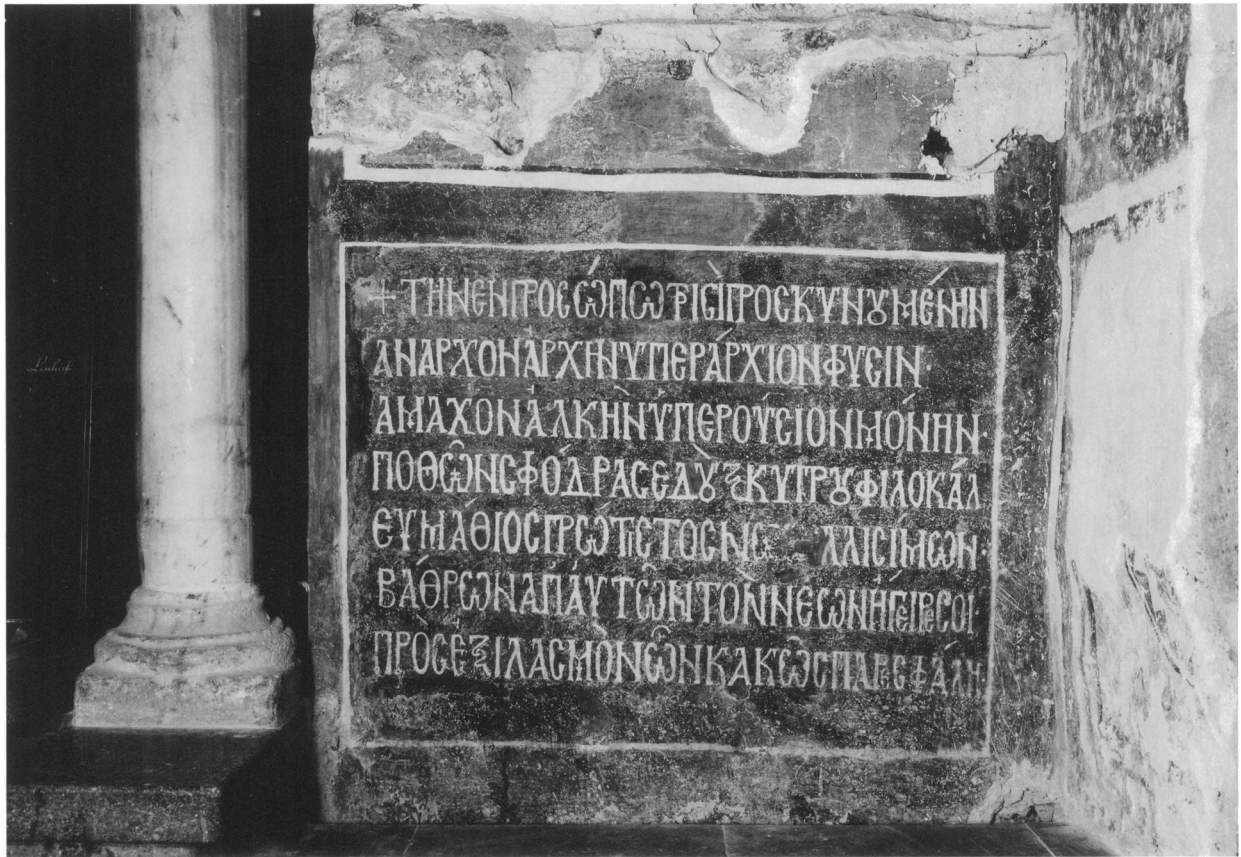 + ΤΗΝΕΝΠΡΟCCΩΠΩ ΤΡΙCΙΠΡΟCΚΥΝȢΜΕΝΗΝ
ΑΝΑΡΧΟΝΑΡΧΗΝΥΠΕΡΑΡΧΙΟΝΦΥCΙΝ·
ΑΜΑΧΟΝΑΛΚΗΝΥΠΕΡΟΥCΙΟΝΜΟΝΗΝ·
ΠΟΘΩΝCΦΟΔΡΑCΕΔȢΞΚΥΠΡȢΦΙΛΟΚΑΛ
ΕΥΜΑΘΙΟCΠΡΩΤΙCΤΟC
ΒΑΘΡΩΝΑΠΑΥΤΩΝΤΟΝΝΕΩΝΗΓΕΙΡΕCΟΙ·
ΠΡΟCΕΞΙΛΑCΜΟΝΩΝΚΑΚΩCΠΑΡΕCΦΑΛΗ·